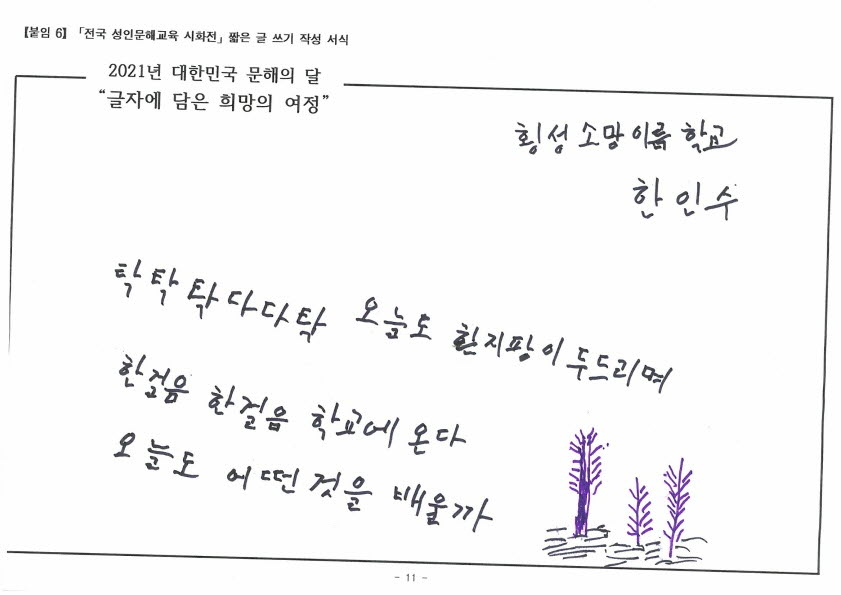 【붙임 6】 「전국 성인문해교육 시화전」 짧은 글 쓰기 작성 서식
2021년 대한민국 문해의 달
“글자에 담은 희망의 여정”
횡성 소망이룸 학교
한인수
탁 탁 탁 다다탁 오늘도 흰지팡이 두드리며
한걸음 한걸음 학교에 온다
오늘도 어떤것을 배울까
- 11 -